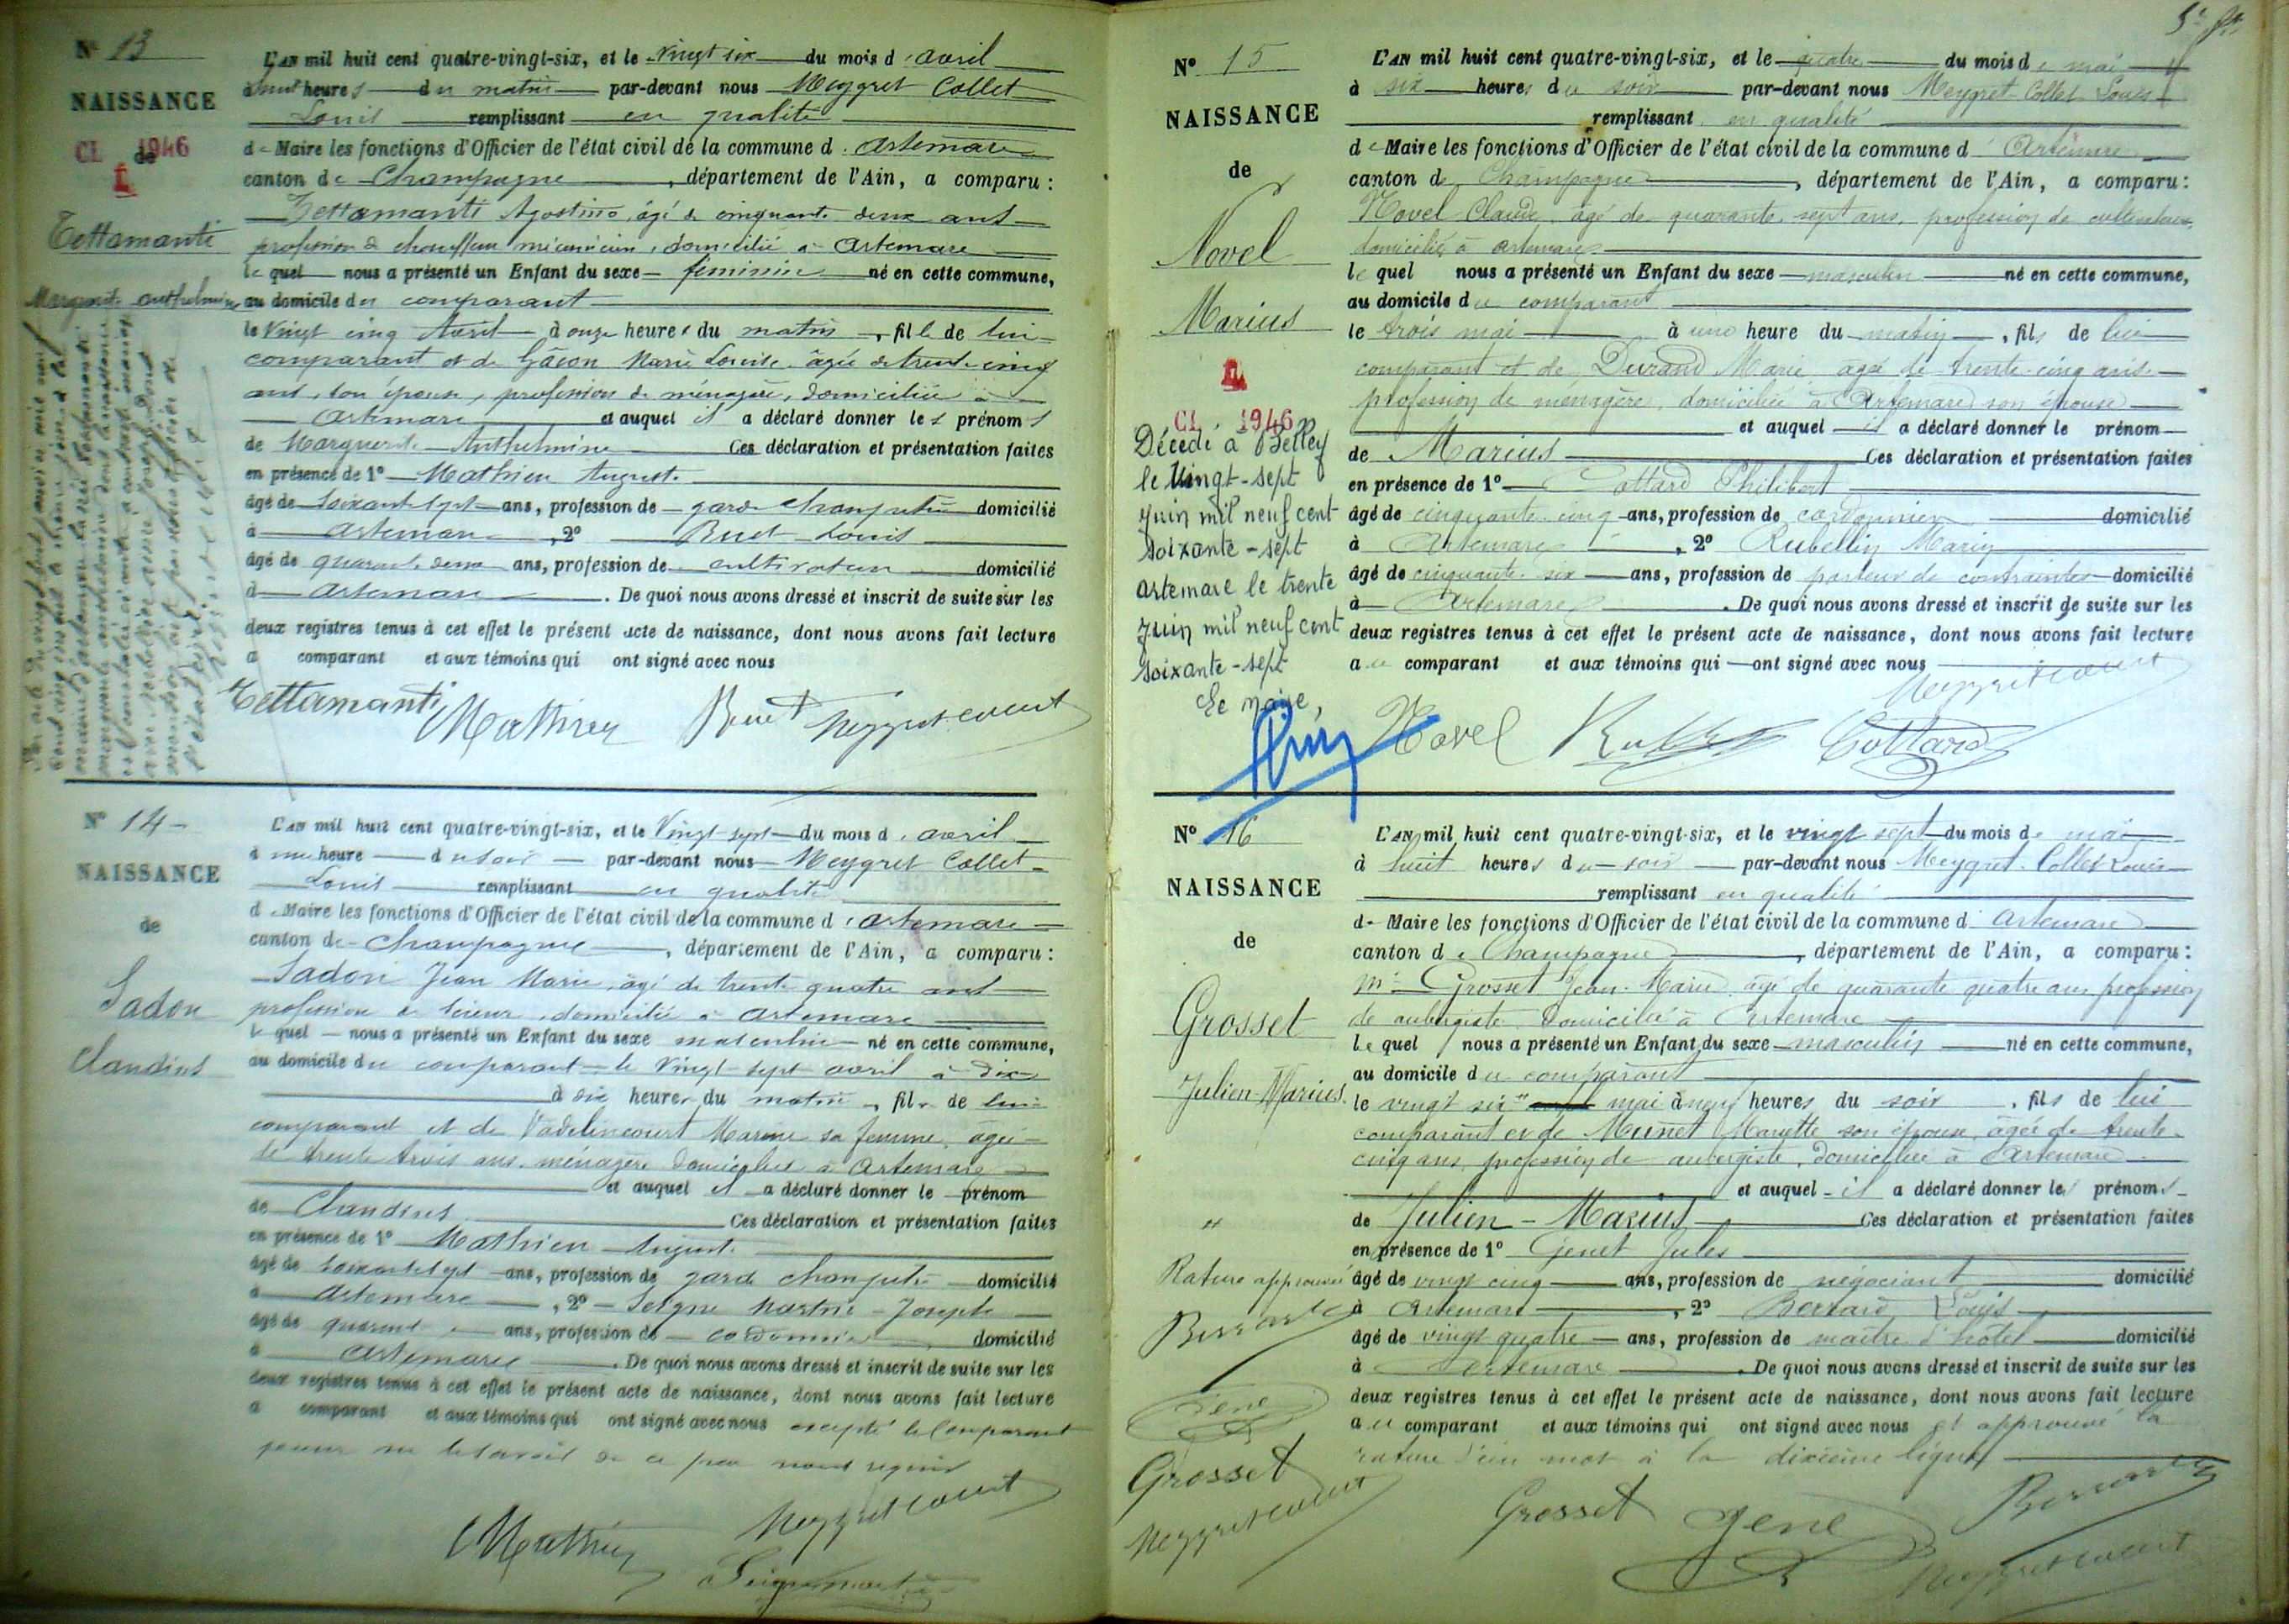 N° 13
NAISSANCE
de
CL 1946
Tettamanti
Marguerite Anthelmine
L'AN mil huit cent quatre-vingt-six, et le vingt six du mois d'avril
à huit heures du matin par-devant nous Meygret Collet
Louis remplissant en qualité
de Maire les fonctions d'Officier de l'état civil de la commune d'Artemare
canton de Champagne, département de l'Ain, a comparu :
Tettamanti Agostino, âgé de cinquante deux ans
profession de chauffeur mécanicien, domicilié à Artemare
le quel nous a présenté un Enfant du sexe féminin né en cette commune,
au domicile du comparant
le vingt cinq Avril à onze heures du matin, fille de lui
comparant et de Gâcon Marie Louise, âgée de trente cinq
ans, son épouse, profession de ménagère, domiciliée à
Artemare et auquel il a déclaré donner les prénoms
de Marguerite Anthelmine Ces déclaration et présentation faites
en présence de 1° Mathieu August
âgé de soixante sept ans, profession de garde champêtre domicilié
à Artemare, 2° Buet Louis
âgé de quarante deux ans, profession de cultivateur domicilié
à Artemare. De quoi nous avons dressé et inscrit de suite sur les
deux registres tenus à cet effet le présent acte de naissance, dont nous avons fait lecture
a comparant et aux témoins qui ont signé avec nous
Tettamanti Mathieu Buet Meygretcollet
N° 14
NAISSANCE
de
Sadon
Claudius
L'AN mil huit cent quatre-vingt-six, et le vingt sept du mois d'avril
à une heure du soir par-devant nous Meygret Collet
Louis remplissant en qualité
de Maire les fonctions d'Officier de l'état civil de la commune d'Artemare
canton de Champagne, département de l'Ain, a comparu :
Sadon Jean Marie, âgé de trente quatre ans
profession de scieur, domicilié à Artemare
le quel nous a présenté un Enfant du sexe masculin né en cette commune,
au domicile du comparant le vingt sept avril à dix
à dix heures du matin, fils de lui
comparant et de Vadelincourt Marine sa femme, âgée
de trente trois ans, ménagère domiciliée à Artemare
et auquel il a déclaré donner le prénom
de Claudius Ces déclaration et présentation faites
en présence de 1° Mathieu August
âgé de soixante sept ans, profession de garde champêtre domicilié
à Artemare, 2° Seigne Martin Joseph
âgé de quarante ans, profession de cordonnier domicilié
à Artemare. De quoi nous avons dressé et inscrit de suite sur les
deux registres tenus à cet effet le présent acte de naissance, dont nous avons fait lecture
a comparant et aux témoins qui ont signé avec nous excepté le comparant
pour ne le savoir de ce par nous requis
Mathieu Meygretcollet
N° 15
NAISSANCE
de
Novel
Marius
CL 1946
Décédé à Belley
le vingt-sept
juin mil neuf cent
soixante-sept
Artemare le trente
juin mil neuf cent
soixante-sept
Le maire,
L'AN mil huit cent quatre-vingt-six, et le quatre du mois de mai
à six heures du soir par-devant nous Meygret Collet Louis
remplissant en qualité
de Maire les fonctions d'Officier de l'état civil de la commune d'Artemare
canton de Champagne, département de l'Ain, a comparu :
Novel Claude, âgé de quarante sept ans, profession de cultivateur,
domicilié à Artemare
le quel nous a présenté un Enfant du sexe masculin né en cette commune,
au domicile du comparant
le trois mai à une heure du matin, fils de lui
comparant et de Durand Marie âgée de trente-cinq ans
profession de ménagère, domiciliée à Artemare son épouse
et auquel il a déclaré donner le prénom
de Marius Ces déclaration et présentation faites
en présence de 1° Cottard Philibert
âgé de cinquante cinq ans, profession de cordonnier domicilié
à Artemare, 2° Rubellin Marin
âgé de cinquante six ans, profession de porteur de contraintes domicilié
à Artemare. De quoi nous avons dressé et inscrit de suite sur les
deux registres tenus à cet effet le présent acte de naissance, dont nous avons fait lecture
au comparant et aux témoins qui ont signé avec nous
Meygretcollet
Novel Cottard
N° 16
NAISSANCE
de
Grosset
Julien-Marius
Rature approuvée
Grosset
Meygretcollet
L'AN mil huit cent quatre-vingt-six, et le vingt sept du mois de mai
à huit heures du soir par-devant nous Meygret-Collet Louis
remplissant en qualité
de Maire les fonctions d'Officier de l'état civil de la commune d'Artemare
canton de Champagne, département de l'Ain, a comparu :
Mr Grosset Jean-Marie, âgé de quarante quatre ans, profession
de aubergiste domicilié à Artemare
le quel nous a présenté un Enfant du sexe masculin né en cette commune,
au domicile du comparant
le vingt six mai à neuf heures du soir, fils de lui
comparant et de Munet Mariette son épouse, âgée de trente
cinq ans, profession de aubergiste, domiciliée à Artemare
et auquel il a déclaré donner les prénoms
de Julien-Marius Ces déclaration et présentation faites
en présence de 1° Genet Jules
âgé de vingt cinq ans, profession de négociant domicilié
à Artemare, 2° Berrard Louis
âgé de vingt quatre ans, profession de maître d'hôtel domicilié
à Artemare. De quoi nous avons dressé et inscrit de suite sur les
deux registres tenus à cet effet le présent acte de naissance, dont nous avons fait lecture
au comparant et aux témoins qui ont signé avec nous et approuvé la
rature d'un mot à la dixième ligne
Grosset Gene Berrard
Meygretcollet